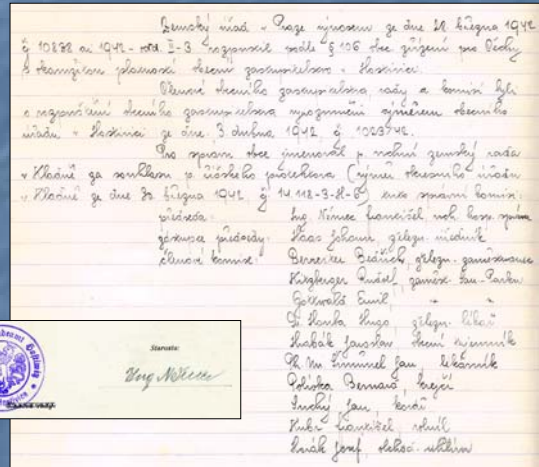 Zemský úřad v Praze výnosem ze dne 28. března 1942
č 10878 ai 1942 - odd. II-3 rozpustil podle § 106 obec. zřízení pro Čechy
s okamžitou platností obecní zastupitelstvo v Hostivici.
Členové obecního zastupitelstva, rady a komisí byli
o rozpuštění obecního zastupitelstva vyrozuměni výměrem obecního
úřadu v Hostivici ze dne 3. dubna 1942, č 1023/42.
Pro správu obce jmenoval p. vrchní zemský rada
v Kladně za souhlasu p. říšského protektora (výměr okresního úřadu
v Kladně ze dne 30. března 1942, č 14.118-3-H-6) tuto správní komisi:
předseda: Ing Němec František, voh. hosp. správce
zástupce předsedy: Haas Johann, železn. úředník
členové komise: Bernerker Bedřich, železn. zaměstnanec
Kirzberger Rudolf, zaměst. Jan-Parku
Gottwald Emil, " "
Dr. Honba Hugo, železn. lékař
Hrabák Jaroslav, obecní tajemník
Ph Mr Šimůnek Jan, lékárník
Polívka Bernard, krejčí
Suchý Jan, kovář
Kubr František, rolník
Novák Josef, obchod. uhlím
Starosta:
Ing Němec